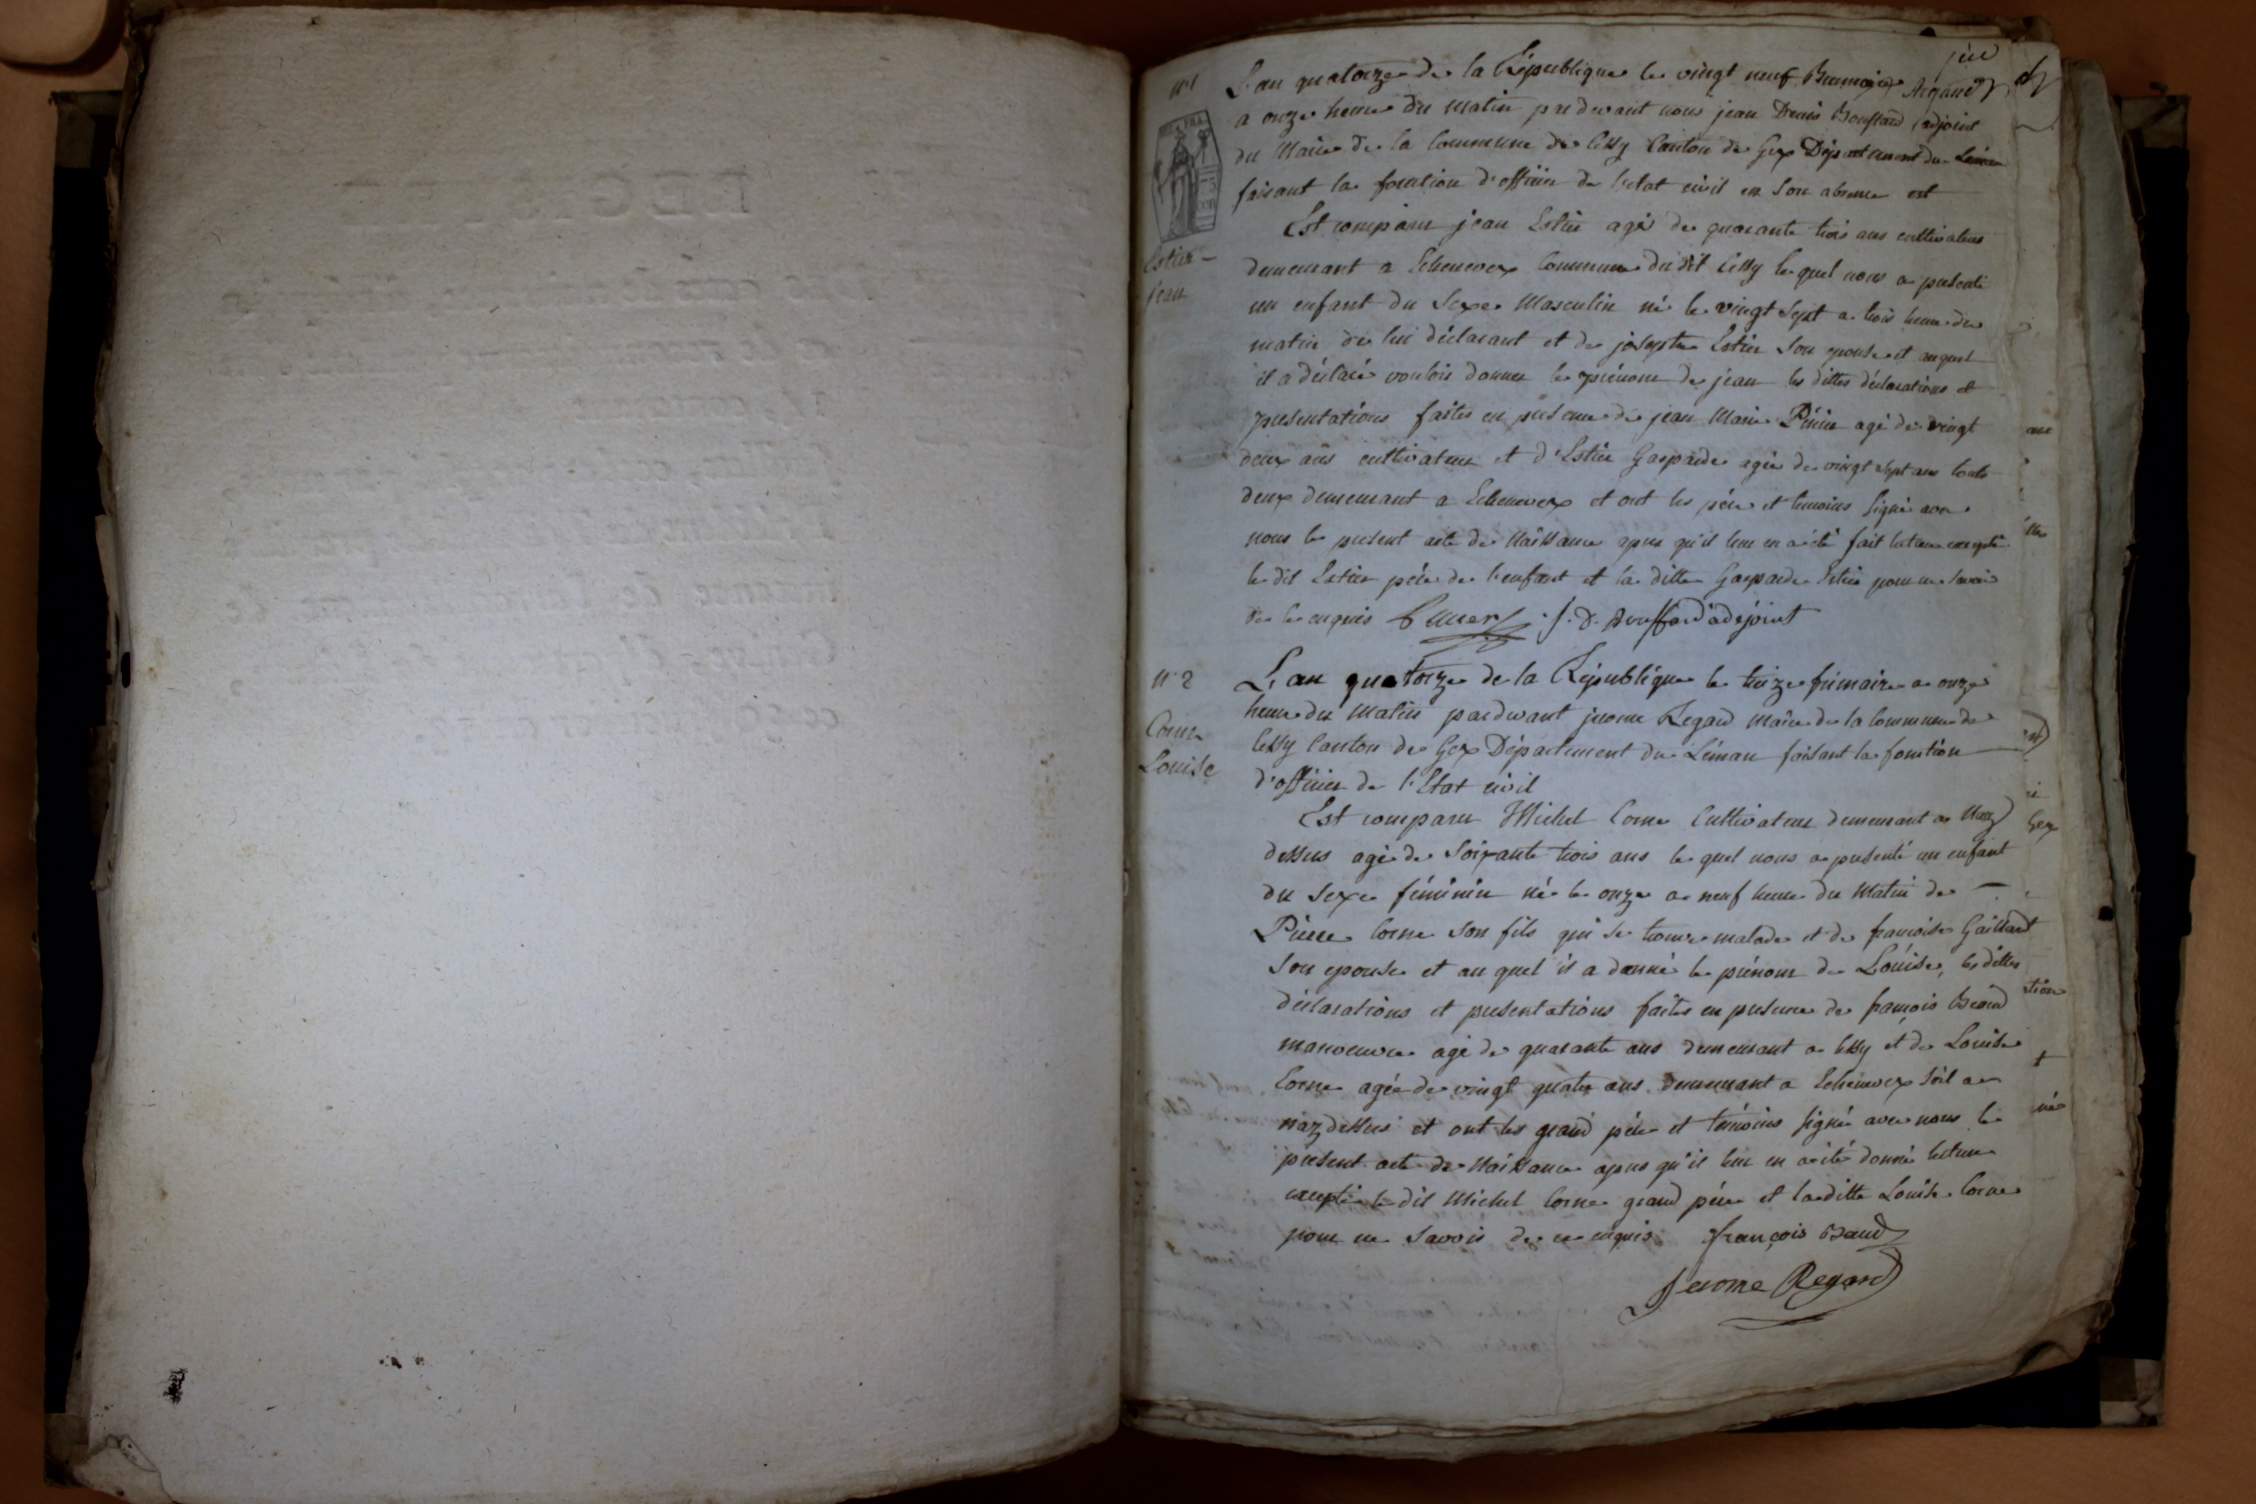 n° 1
L'an quatorze de la République le vingt neuf Brumaire
a onze heure du matin par devant nous jean Denis Bouffard adjoint
du Maire de la Commune de Cessy Canton de Gex Département du Léman
faisant la fonction d'officier de l'etat civil en son absence est
Est comparu jean Estier agé de quarante trois ans cultivateur
demeurant a Echenevex Commune du dit Cessy le quel nous a présenté
un enfant du Sexe Masculin né le vingt Sept a trois heure du
matin de lui déclarant et de josephte Estier Son epouse et auquel
il a déclaré vouloir donner le prénom de jean les dittes déclarations et
presentations faites en présence de jean Marie agé de vingt
deux ans cultivateur et d'Estier Gasparde agée de vingt sept ans touts
deux demeurant a Echenevex et ont les pére et temoins Signé avec
nous le present acte de Naissance apres qu'il leur en a été fait lecture excepté
le dit Estier pére de l'enfant et la ditte Gasparde Estier pour ne savoir
de ce enquis J. D. Bouffard adjoint
Estier
Jean
n° 2
Corne
Louise
L'an quatorze de la République le treize frimaire a onze
heure du Matin pardevant jerome Regard Maire de la Commune de
Cessy Canton de Gex Département du Léman faisant la fonction
d'officier de l'Etat civil
Est comparu Michel Corne Cultivateur demeurant a Naz
dessus agé de Soixante trois ans le quel nous a présenté un enfant
du Sexe féminin né le onze a neuf heure du Matin de
Pierre Corne Son fils qui se trouve malade et de francoise Gaillard
Son epouse et au quel il a donné le prénom de Louise, les dittes
déclarations et presentations faites en présence de françois Baud
manoeuvre agé de quarante ans demeurant a Cessy et de Louise
Corne agée de vingt quatre ans demeurant a Echenevex soit a
naz dessus et ont les grand pére et témoins signé avec nous le
présent acte de Naissance apres qu'il leur en a été donné lecture
excepté le dit Michel Corne grand pére et la ditte Louise Corne
pour ne Savoir de ce enquis françois Baud
Jerome Regard